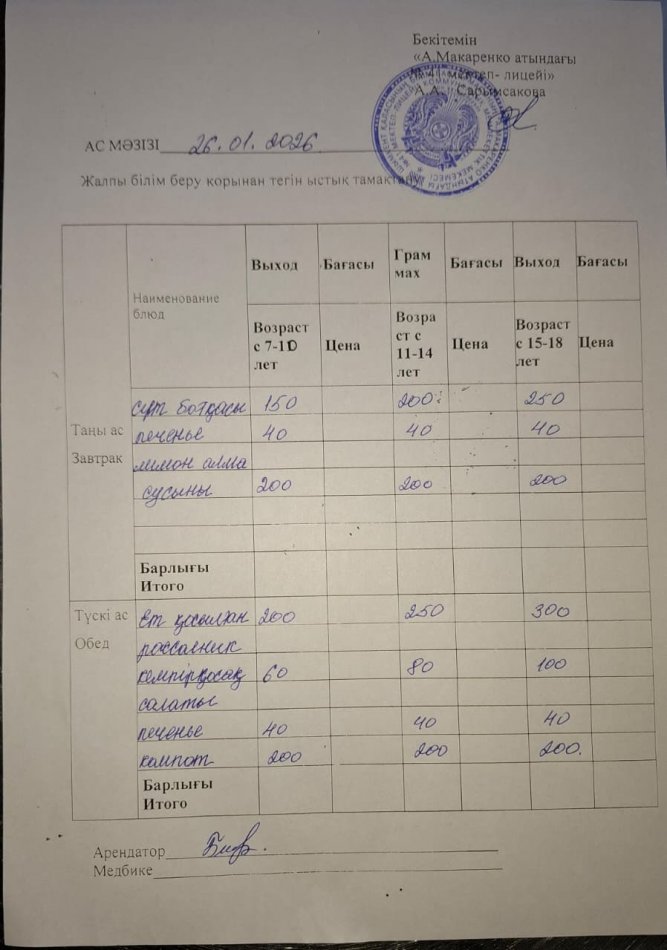 Бекітемін
«А.Макаренко атындағы
№41 мектеп- лицейі»
А.А. Сарымсакова
АС МӘЗІЗІ 26.01.2026
Жалпы білім беру қорынан тегін ыстық тамақтану
Наименование блюд
Выход Бағасы Грам мах Бағасы Выход Бағасы
Возраст с 7-10 лет Цена Возраст с 11-14 лет Цена Возраст с 15-18 лет Цена
Таңы ас
Завтрак
сүт ботқасы 150 200 250
печенье 40 40 40
лимон алма
сусыны 200 200 200
Барлығы
Итого
Түскі ас
Обед
Ет қосылған 200 250 300
рассольник
кемпірқосақ 60 80 100
салаты
печенье 40 40 40
компот 200 200 200.
Барлығы
Итого
Арендатор
Медбике